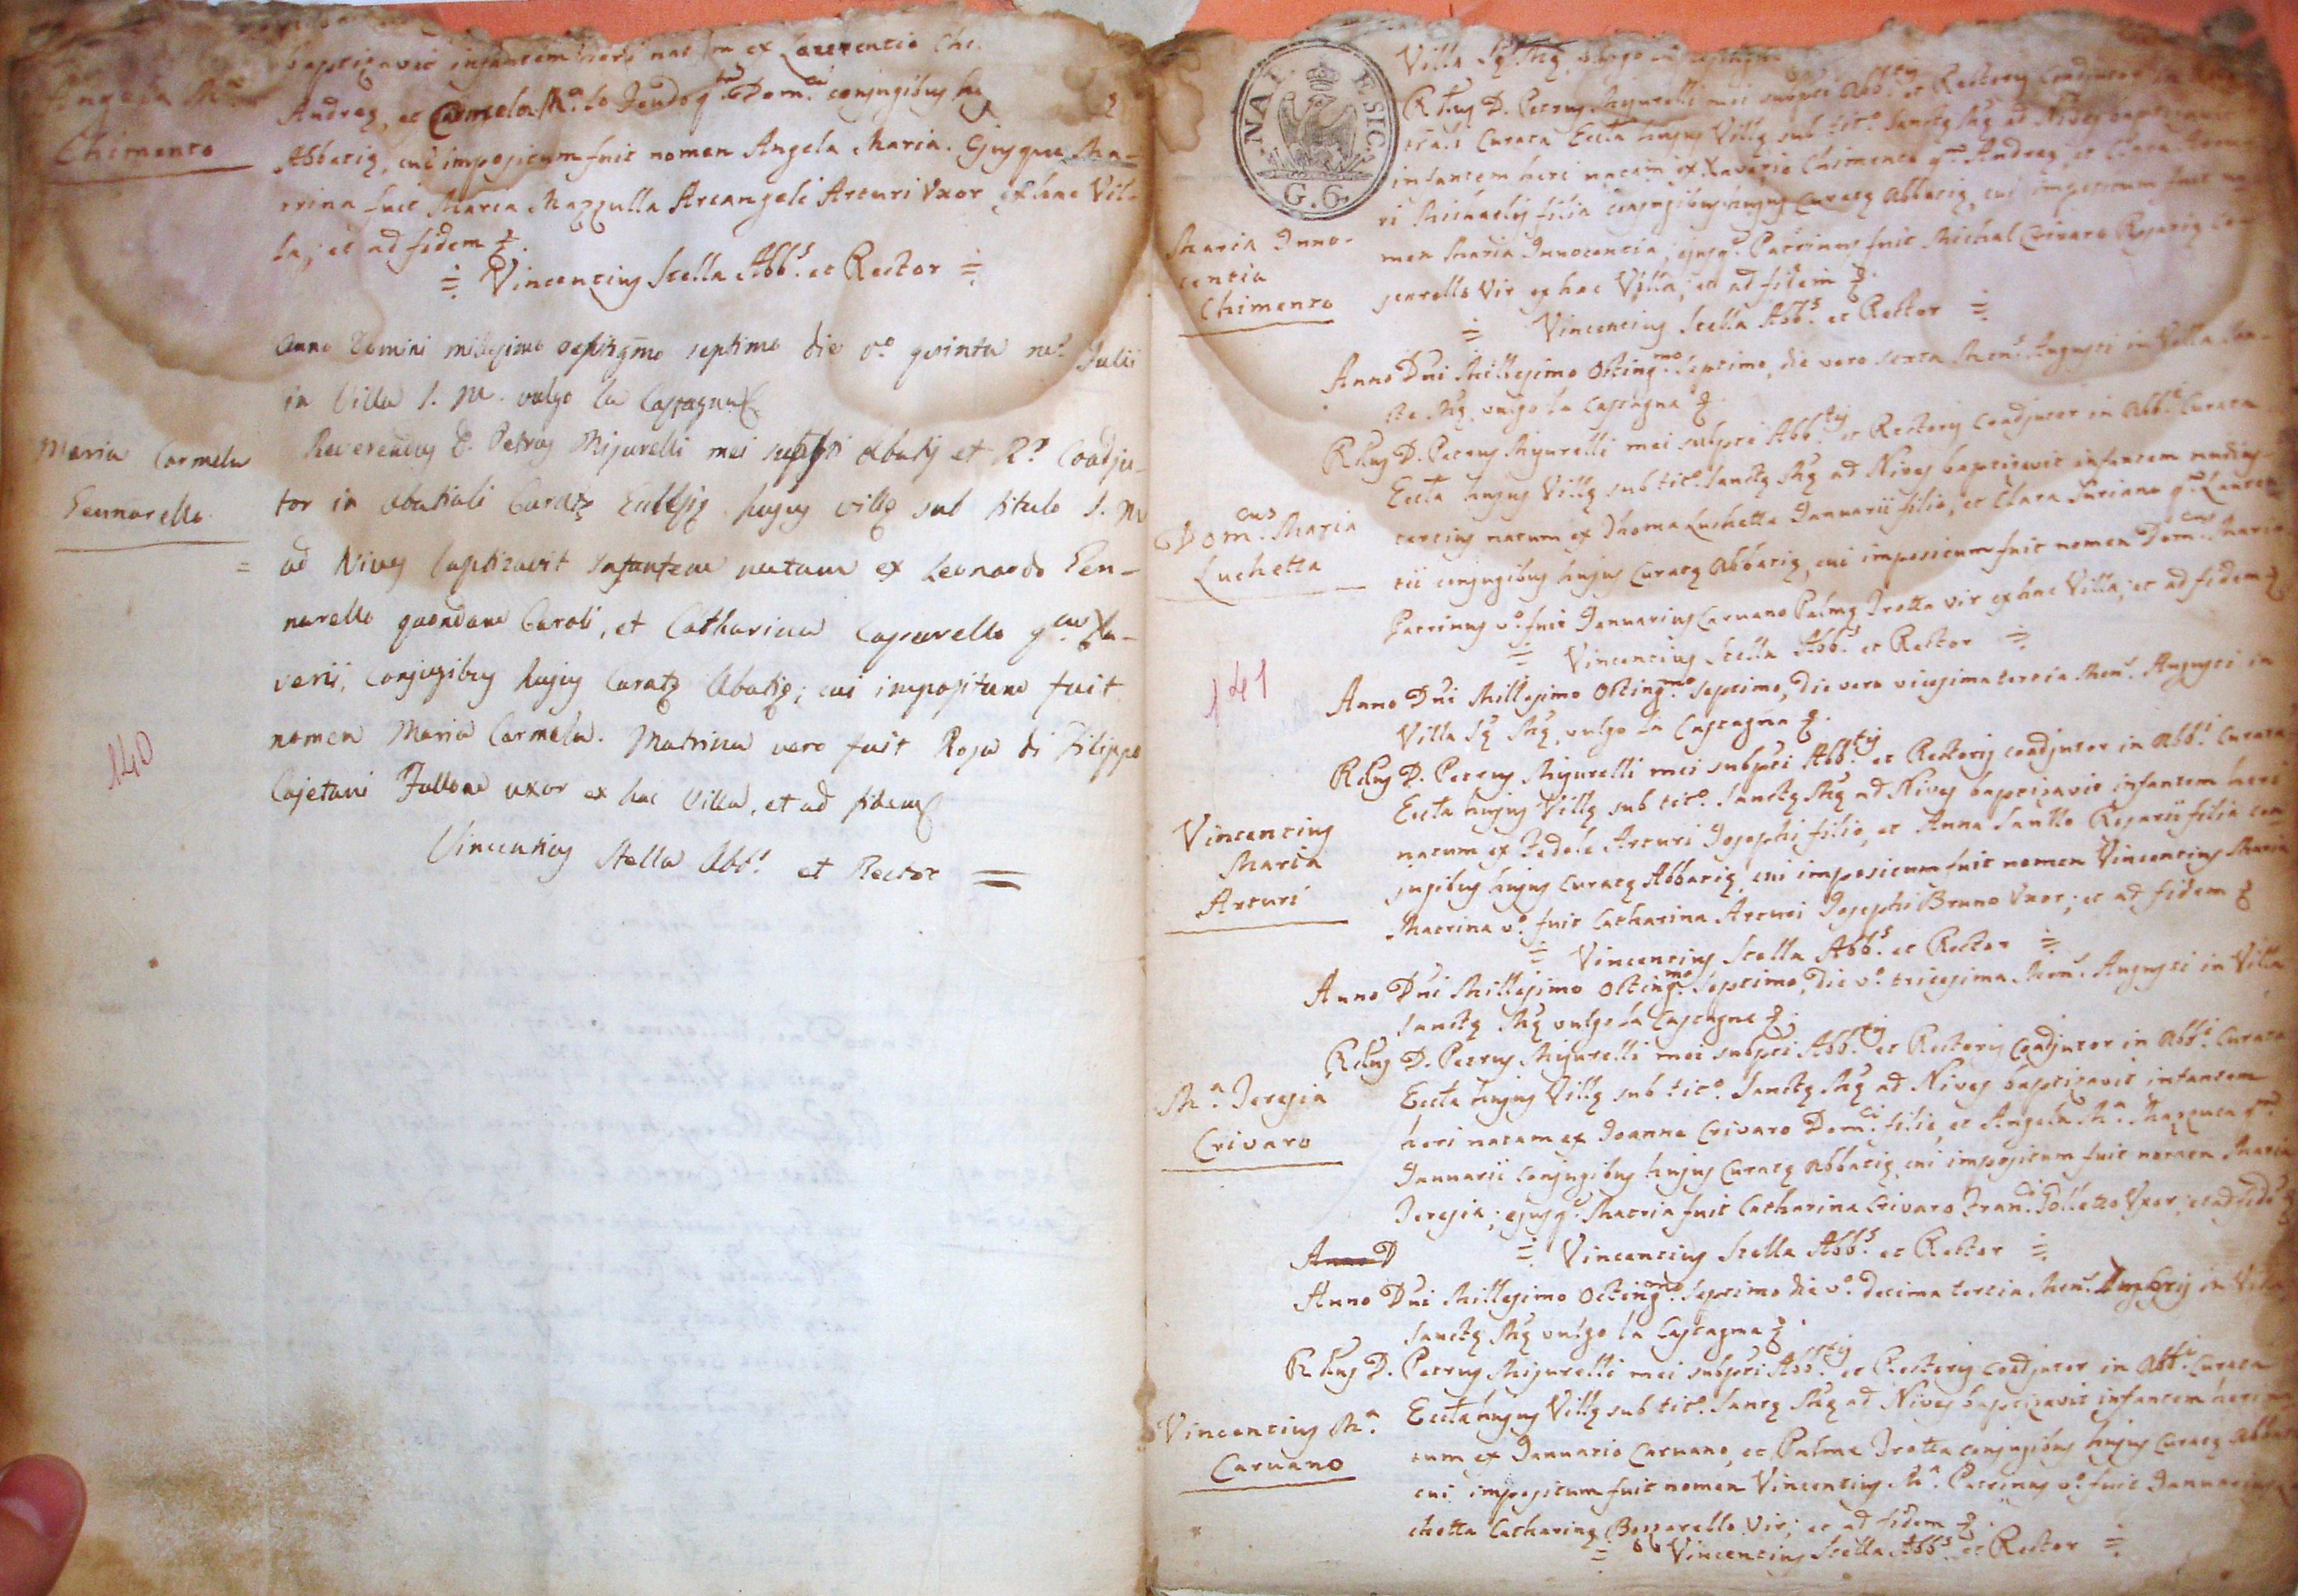 baptizavit infantem heri nat ex Laurentio Chi
Angela M.ª
Chimento
Andreę, et Carmela M.ª lo Feudo conjugibus
Abbatię, cui impositum fuit nomen Angela Maria. Ejusque Ma-
trina fuit Maria Mazzulla Arcangeli Arturi Uxor ex hac Vil-
la; et ad fidem
= Vincentius Stella Abb.s et Rector =
Anno Domini millesimo septimo die v.o quinta Julii
in Villa S. M. vulgo la Castagna
Maria Carmela
Gennarello
Reverendus D. Petrus Mijurelli mei Abatis et R.s Coadju-
tor in Abatiali Curatę Ecclesię hujus villę sub titulo S. M
ad Nives baptizavit Infantem natam ex Leonardo Gen-
narello quondam Caroli, et Catharina Caparello q.m Xa-
verii, Conjugibus hujus Curatę Abatię; cui impositum fuit
nomen Maria Carmela. Matrina vero fuit Rosa di Filippo
Cajetani Fallone uxor ex hac Villa, et ad fidem
Vincentius Stella Abb.s et Rector =
140
NA
E SIC.
G. 6.
Villa Sę Mę vulgo
R.dus D. Petrus Mijurelli mei Abb.tis et Rectoris Coadjutor
Curata Eccla hujus Villę sub tit.o Sanctę Mę ad Nives baptizavit
infantem heri natam ex Xaverio Chimento q.m Andreę, et Clara
ri Michaelis filia conjugibus hujus Curatę Abbatię, cui impositum fuit no-
Maria Inno-
centia
Chimento
men Maria Innocentia; ejusq. Patrinus fuit Michael Crivaro Rosarię
Vir ex hac Villa; et ad fidem
= Vincentius Stella Abb.s et Rector =
Anno Dni Millesimo Octing.mo Septimo, die vero sexta Mens. Augusti in Villa San-
ctę Mę vulgo la Castagna
R.dus D. Petrus Mijurelli mei Abb.tis et Rectoris Coadjutor in Abb.i Curata
Eccla hujus Villę sub tit.o Sanctę Mę ad Nives baptizavit infantem nudius
Dom.cus Maria
Luchetta
tertius natum ex Thoma Luchetta Januarii filio, et Clara Suriano q.m Lauren
tii conjugibus hujus Curatę Abbatię, cui impositum fuit nomen Dom.cus Maria
Patrinus v.o fuit Januarius Caruano Palmę Trotta vir ex hac Villa; et ad fidem
= Vincentius Stella Abb.s et Rector =
141
Anno Dni Millesimo Octing.mo Septimo, die vero vicesima tertia Mens. Augusti in
Villa Sę Mę vulgo la Castagna
R.dus D. Petrus Mijurelli mei Abb.tis et Rectoris coadjutor in Abb.i Curata
Eccla hujus Villę sub tit.o Sanctę Mę ad Nives baptizavit infantem heri
Vincentius
Maria
Arturi
natum ex Fedele Arturi Josephi filio, et Anna Santto Rosarii filia con
jugibus hujus Curatę Abbatię, cui impositum fuit nomen Vincentius Maria
Matrina v.o fuit Catharina Arturi Josephi Bruno Uxor; et ad fidem
= Vincentius Stella Abb.s et Rector =
Anno Dni Millesimo Octing.mo Septimo, die v.o tricesima Mens. Augusti in Villa
Sanctę Mę vulgo la Castagna
R.dus D. Petrus Mijurelli mei Abb.tis et Rectoris Coadjutor in Abb.i Curata
M.ª Teresia
Crivaro
Eccla hujus Villę sub tit.o Sanctę Mę ad Nives baptizavit infantem
heri natam ex Joanne Crivaro Dom.ci filio, et Angela M.ª Mazzuca q.m
Januarii conjugibus hujus Curatę Abbatię, cui impositum fuit nomen Maria
Teresia; ejusq. Matria fuit Catharina Crivaro Fran.ci Uxor; et ad fidem
Anno D
= Vincentius Stella Abb.s et Rector =
Anno Dni Millesimo Octing.mo Septimo die v.o decima tertia Mens. in Villa
Sanctę Mę vulgo la Castagna
R.dus D. Petrus Mijurelli mei Abb.tis et Rectoris Coadjutor in Abb.i Curata
Vincentius M.ª
Caruano
Eccla hujus Villę sub tit.o Sanctę Mę ad Nives baptizavit infantem heri na
tum ex Januario Caruano, et Palma Trotta conjugibus hujus Curatę Abbatię
cui impositum fuit nomen Vincentius M.ª Patrinus v.o fuit Januarius
chetta Catharinę vir; et ad fidem
= Vincentius Stella Abb.s et Rector =